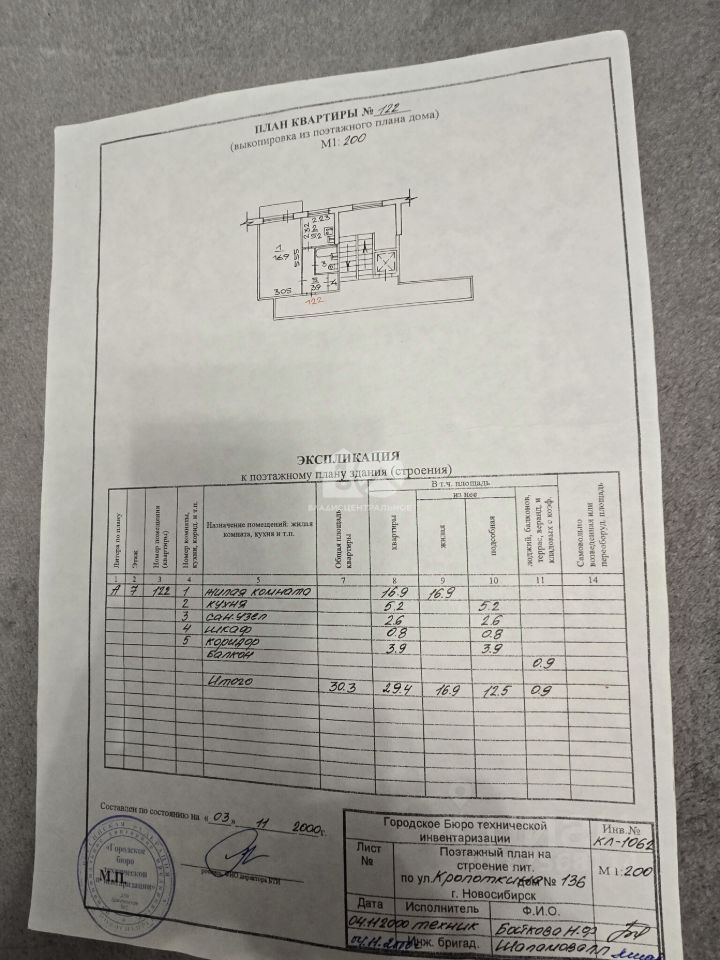 ПЛАН КВАРТИРЫ № 122
(выкопировка из поэтажного плана дома)
М1: 200
2.23
2
5.2
2.32
1
16.9
5.55
3
4
5
3.9
3.05
122
ЭКСПЛИКАЦИЯ
к поэтажному плану здания (строения)
Литера по плану
Этаж
Номер помещения (квартиры)
Номер комнаты, кухни, корид. и т.п.
Назначение помещений: жилая комната, кухня и т.п.
Общая площадь квартиры
В т.ч. площадь
из нее
квартиры
жилая
подсобная
лоджий, балконов, террас, веранд, и кладовых с коэф.
Самовольно возведенная или переоборуд. площадь
1 2 3 4 5 7 8 9 10 11 14
А 7 122 1 жилая комната 16.9 16.9
2 кухня 5.2 5.2
3 сан.узел 2.6 2.6
4 шкаф 0.8 0.8
5 коридор 3.9 3.9
балкон 0.9
Итого 30.3 29.4 16.9 12.5 0.9
ВЛАДИС ЦЕНТРАЛЬНОЕ
Составлен по состоянию на «03» 11 2000г.
М.П.
«Городское бюро технической инвентаризации»
роспись, ФИО директора БТИ
Городское Бюро технической инвентаризации
Инв.№
КЛ-1062
Лист №
Поэтажный план на строение лит.
по ул. Кропоткина дом № 136
г. Новосибирск
М 1:200
Дата Исполнитель Ф.И.О.
04.11.2000 техник Бойкова Н.Ф
04.11.2000 Инж. бригад.